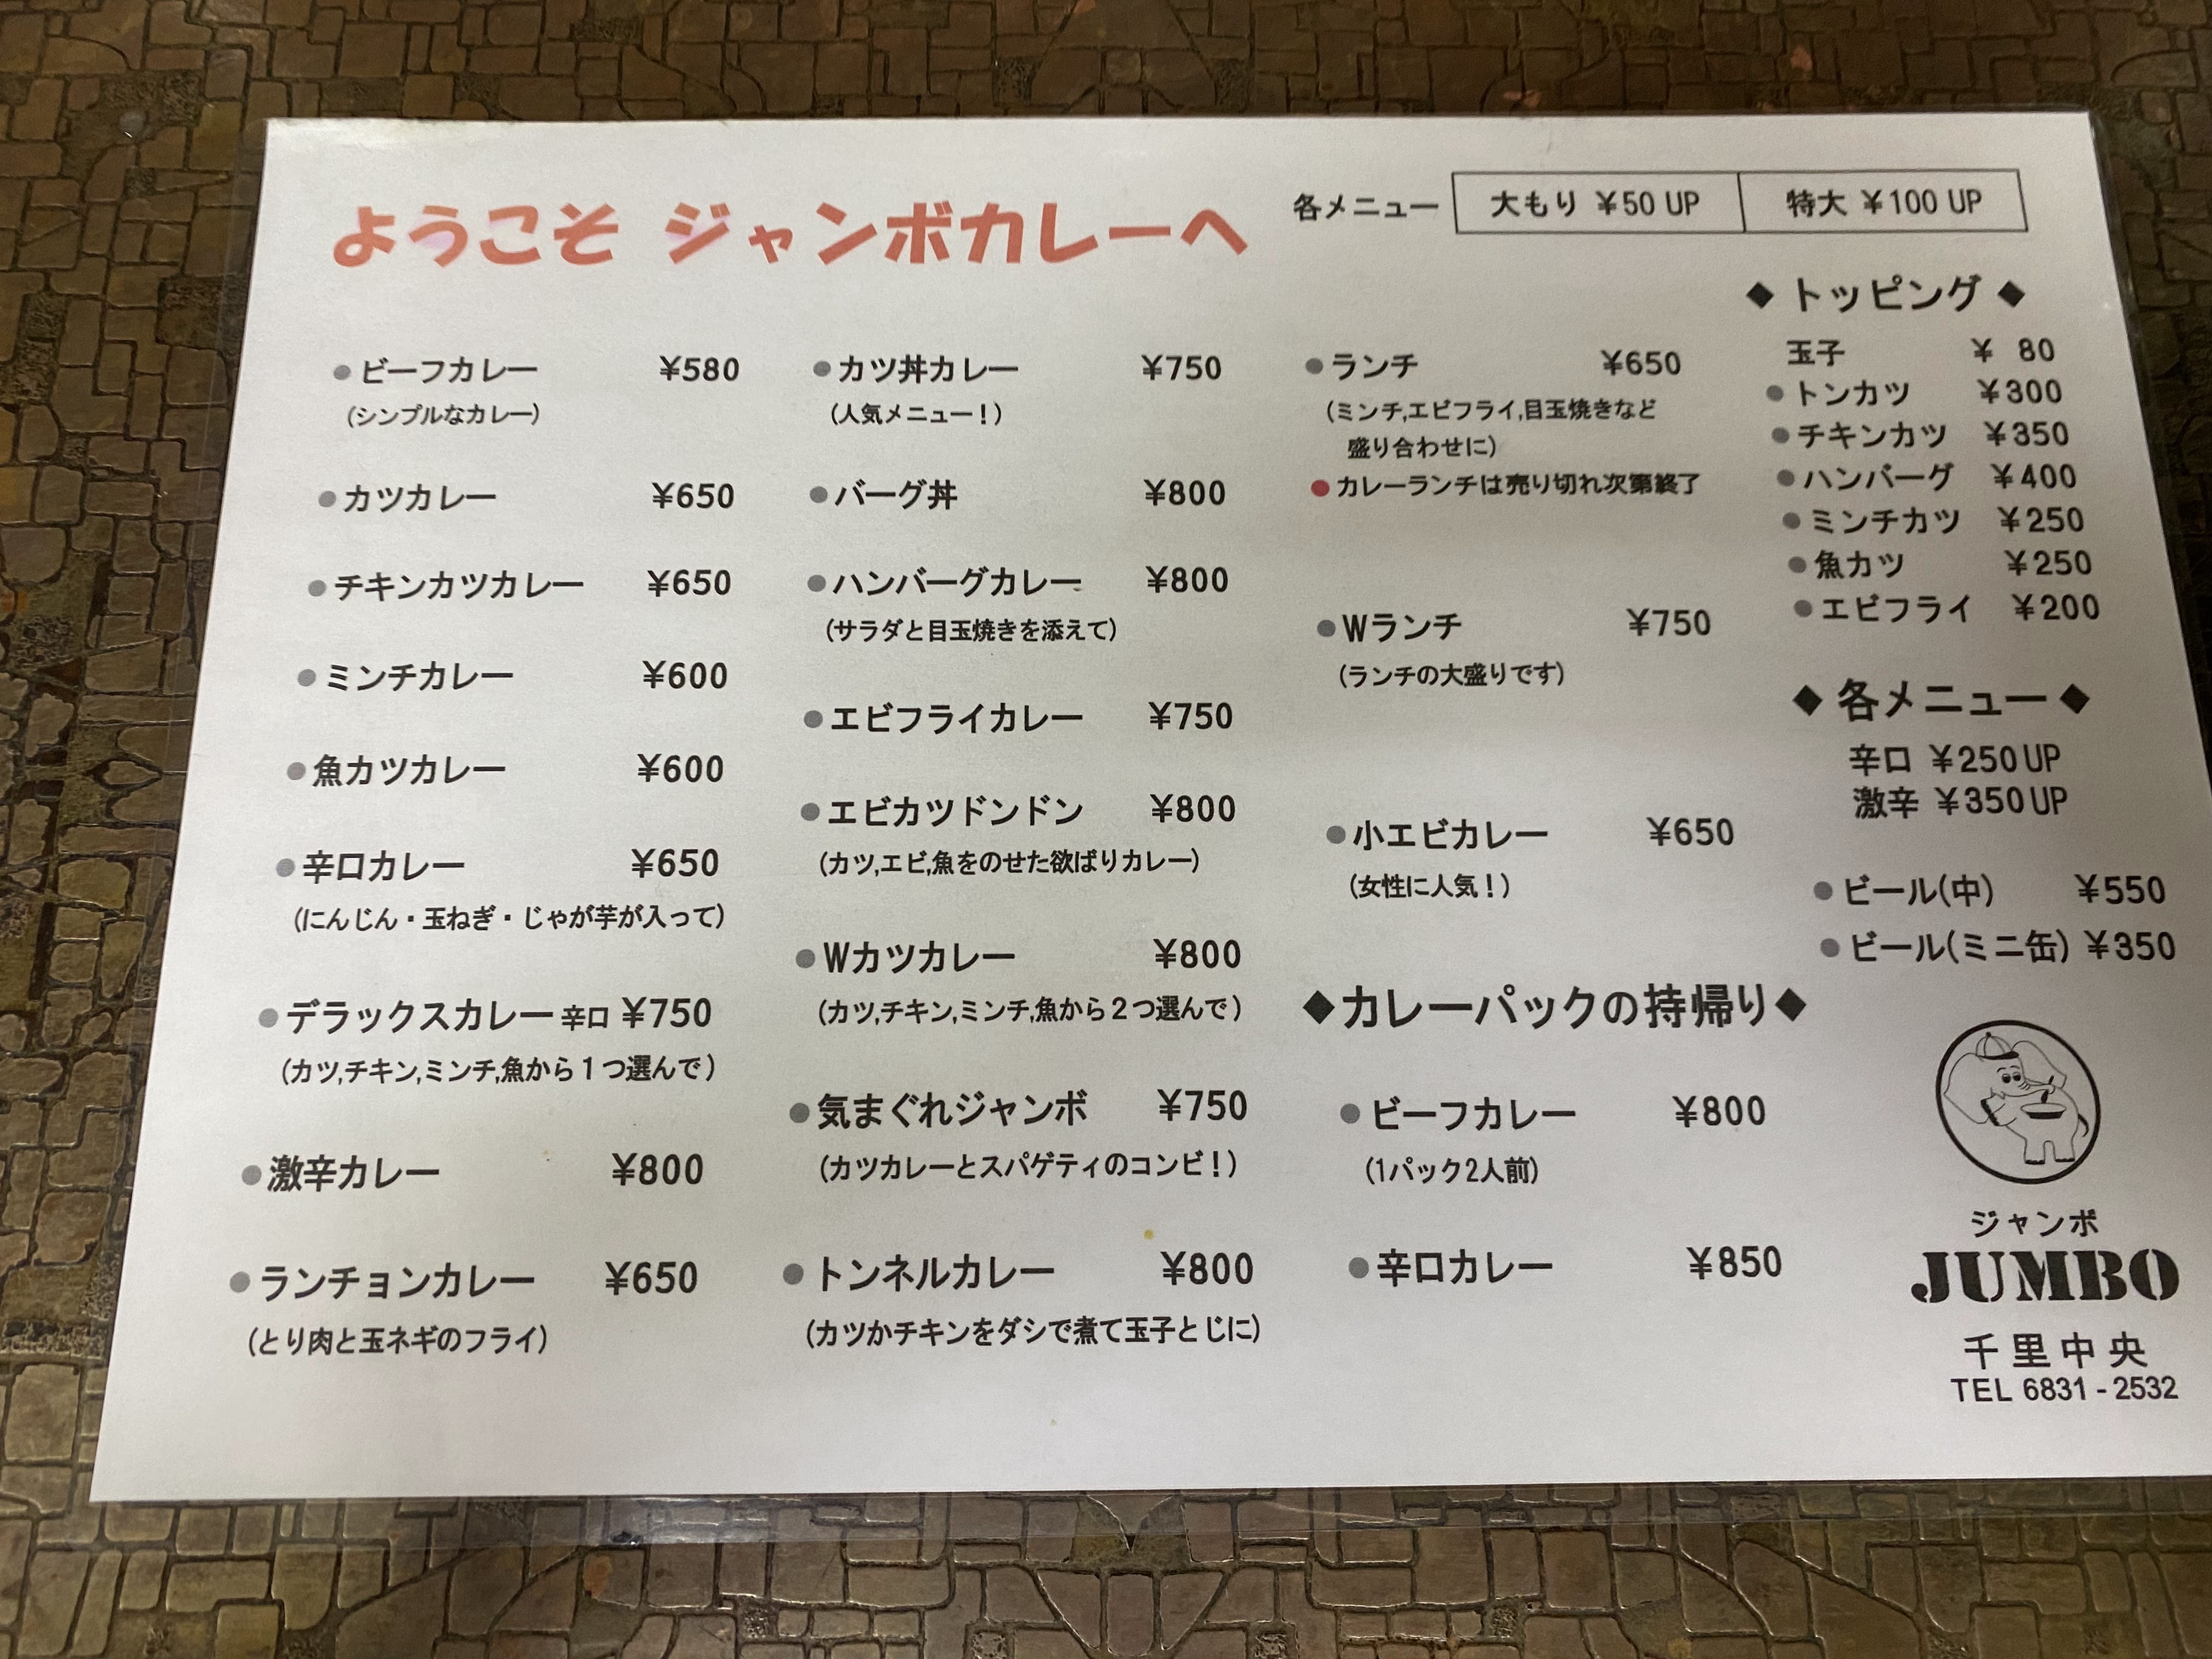 ようこそ ジャンボカレーへ
各メニュー 大もり ¥50 UP 特大 ¥100 UP
●ビーフカレー ¥580
(シンプルなカレー)
●カツカレー ¥650
●チキンカツカレー ¥650
●ミンチカレー ¥600
●魚カツカレー ¥600
●辛口カレー ¥650
(にんじん・玉ねぎ・じゃが芋が入って)
●デラックスカレー辛口 ¥750
(カツ,チキン,ミンチ,魚から1つ選んで)
●激辛カレー ¥800
●ランチョンカレー ¥650
(とり肉と玉ネギのフライ)
●カツ丼カレー ¥750
(人気メニュー!)
●バーグ丼 ¥800
●ハンバーグカレー ¥800
(サラダと目玉焼きを添えて)
●エビフライカレー ¥750
●エビカツドンドン ¥800
(カツ,エビ,魚をのせた欲ばりカレー)
●Wカツカレー ¥800
(カツ,チキン,ミンチ,魚から2つ選んで)
●気まぐれジャンボ ¥750
(カツカレーとスパゲティのコンビ!)
●トンネルカレー ¥800
(カツかチキンをダシで煮て玉子とじに)
●ランチ ¥650
(ミンチ,エビフライ,目玉焼きなど
盛り合わせに)
●カレーランチは売り切れ次第終了
●Wランチ ¥750
(ランチの大盛りです)
●小エビカレー ¥650
(女性に人気!)
◆カレーパックの持帰り◆
●ビーフカレー ¥800
(1パック2人前)
●辛口カレー ¥850
◆ トッピング ◆
玉子 ¥ 80
●トンカツ ¥300
●チキンカツ ¥350
●ハンバーグ ¥400
●ミンチカツ ¥250
●魚カツ ¥250
●エビフライ ¥200
◆ 各メニュー ◆
辛口 ¥250UP
激辛 ¥350UP
●ビール(中) ¥550
●ビール(ミニ缶) ¥350
ジャンボ
JUMBO
千里中央
TEL 6831-2532